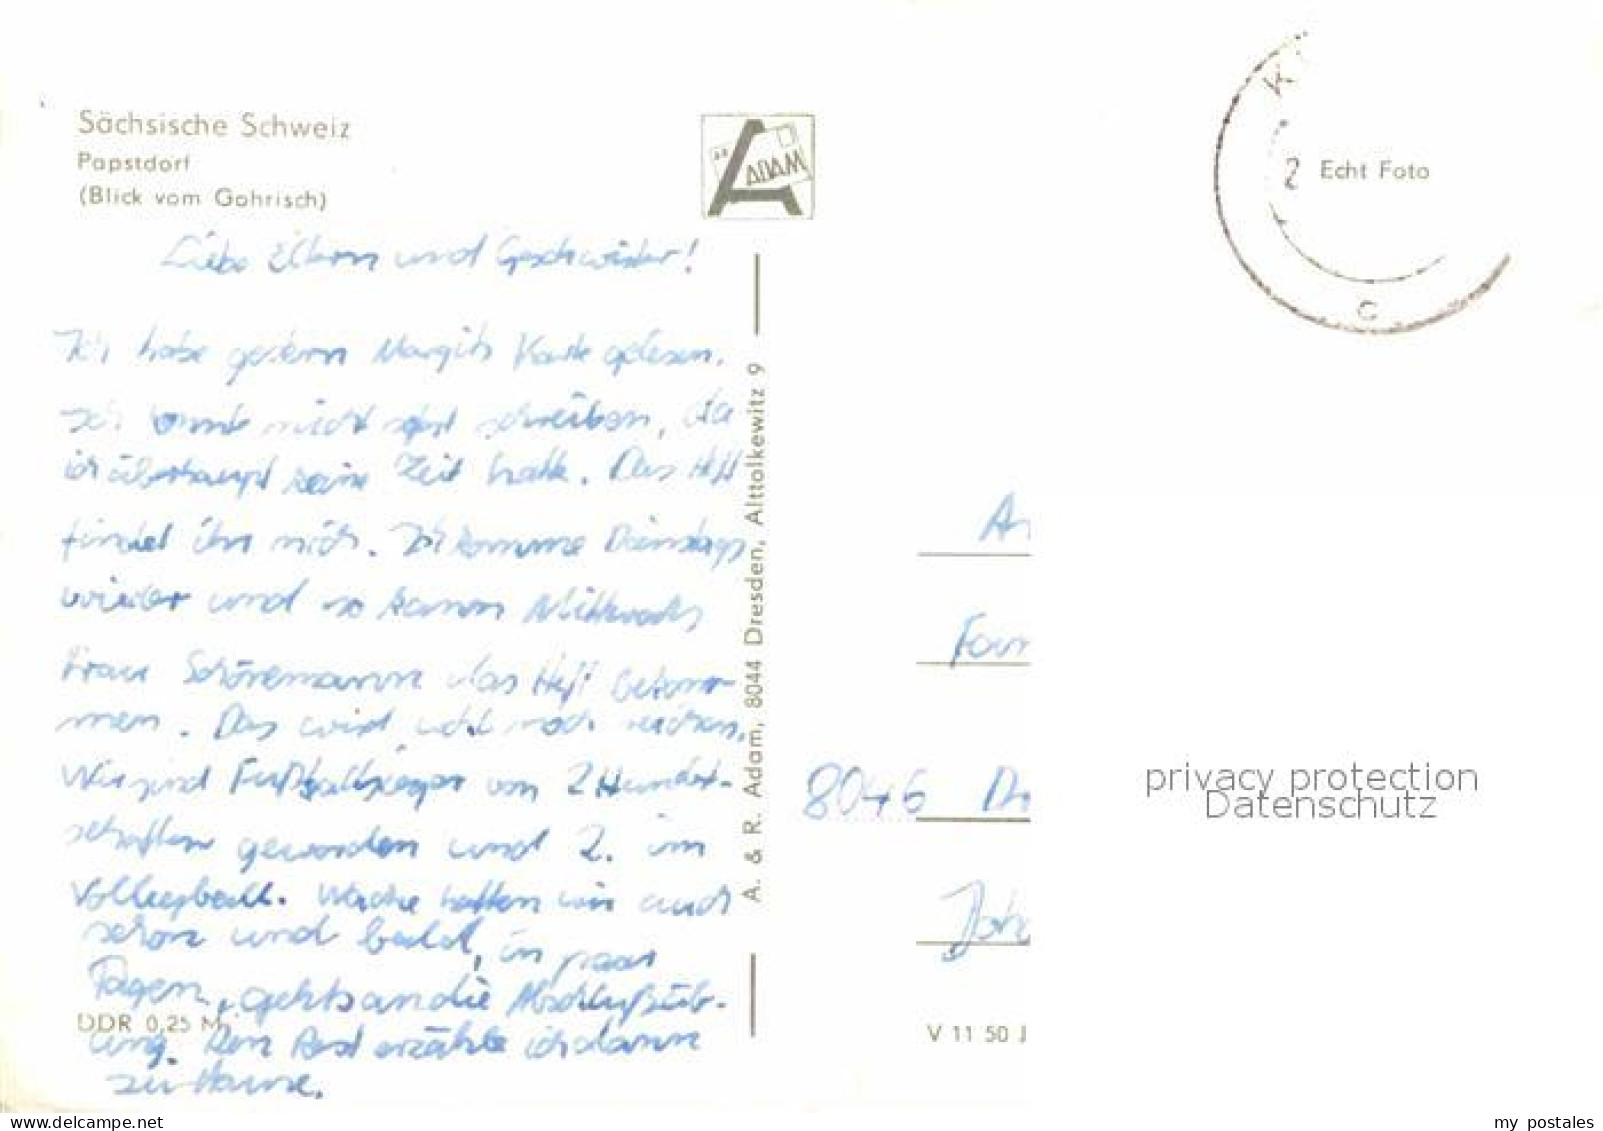 Sächsische Schweiz
Papstdorf
(Blick vom Gohrisch)
ADAM
Liebe Eltern und Geschwister!
Ich habe gestern Margits Karte gelesen.
Ich konnte nicht schreiben, da
ich überhaupt keine Zeit hatte. Das Heft
findet ihr nich. Ich komme Dienstags
wieder und so kann Mittwochs
Frau Schönemann das Heft bekom-
men. Das wird wohl noch reichen.
Wir sind Fußballsieger von 2 Hundert-
schaften geworden und 2. im
Volleyball. Wache hatten wir auch
schon und bald, in paar
Tagen, gehts an die Abschlußüb-
ung. Den Rest erzähle ich dann
zu Hause.
DDR 0,25 M
A. & R. Adam, 8044 Dresden, Alttolkewitz 9
K
2
C
Echt Foto
An
Fam
8046 Dr
Joh
V 11 50 J
privacy protection
Datenschutz
my postales